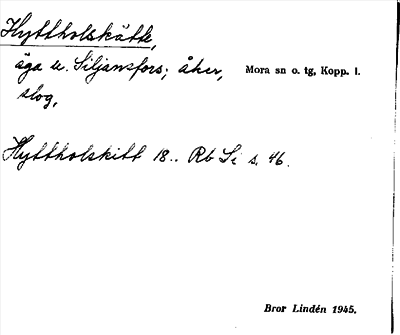 Hyttholskätte,
äga u. Siljansfors; åker, Mora sn o. tg, Kopp. l.
slog,
Hyttholskitt 18.. Rb Si s. 46.
Bror Lindén 1945.